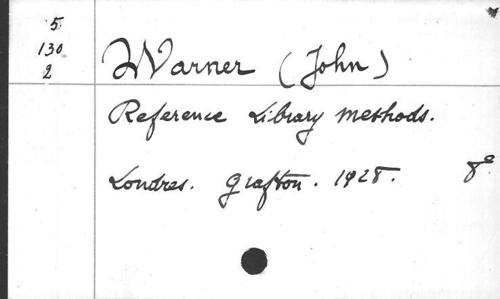 5
130
2
Warner (John)
Reference Library methods.
Londres. Grafton. 1928. 8º